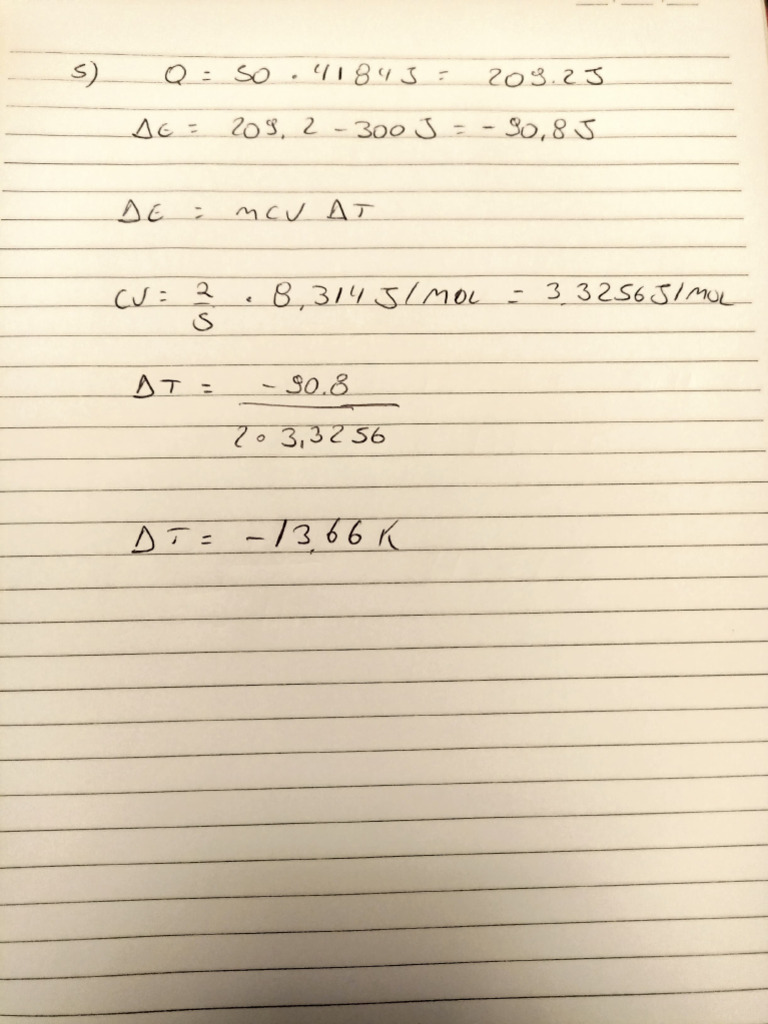 5) Q = 50 . 4184J = 209.2J
ΔE = 209,2 - 300J = - 90,8J
ΔE = mCV ΔT
CV = 2/5 . 8,314J/MOL = 3,3256J/MOL
ΔT = -90.8 / 2∘3,3256
ΔT = -13,66K